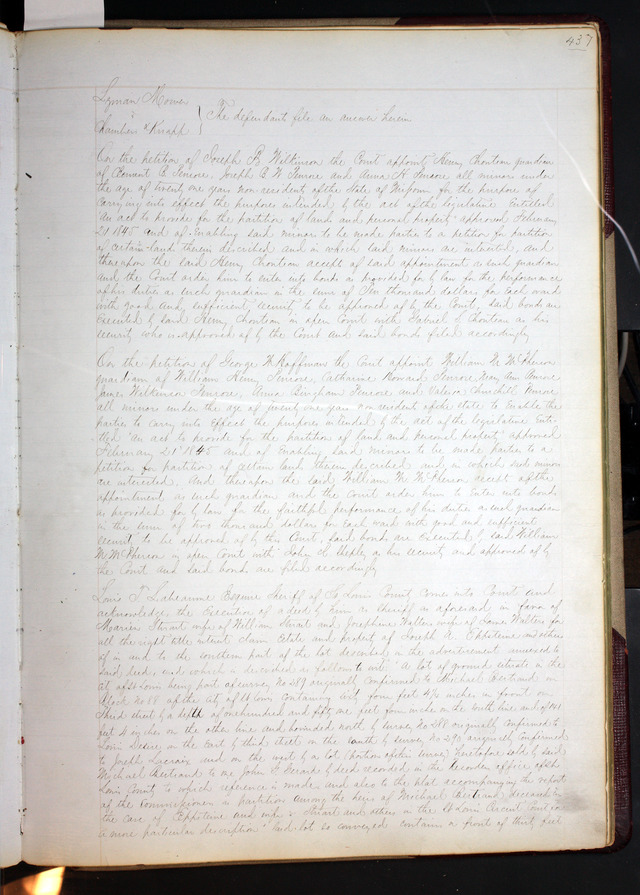 437
Lyman Mower
vs
Chambers & Knapp } The defendant file an answer herein
On the petition of Joseph B Wilkinson the Court appoints Henry Chouteau guardian
of B Penrose, Joseph B W Penrose and Anna H Penrose all minors under
the age of twenty one years non resident of the State of Missouri for the purpose of
carrying into effect the purposes intended by the act of the legislature Entitled
"An act to provide for the partition of lands and personal property" approved February
21 1845 and of Enabling said minors to be made parties to a petition for partition
of certain land therein described and in which said minors are interested, and
thereupon the said Henry Chouteau accepts of said appointment as such guardian
and the Court orders him to enter into bonds as provided for by law for the performance
of his duties as such guardian in the sum of Ten thousand dollars for Each ward
with good and sufficient security to be approved of by the Court, said bonds are
Executed by said Henry Chouteau in open Court with Gabriel S Chouteau as his
security who is approved of by the Court and said bonds filed accordingly
On the petition of George W Hoffman the Court appoint William M McPherson
guardian of William Henry Penrose, Catharine Howard Penrose Mary Ann Penrose
James Wilkinson Penrose, Anna Bingham Penrose and Valeria Churchill Penrose
all minors under the age of twenty one years non resident of the state to Enable the
parties to carry into Effect the purposes intended by the act of the legislature Enti-
tled "An act to provide for the partition of land and personal property" approved
February 21st 1845 and of Enabling said minors to be made parties to a
petition for partition of certain land therein described and in which said minors
are interested. And thereupon the said William M McPherson accepts of the
appointment as such guardian and the Court orders him to Enter into bonds
as provided for by law for the faithful performance of his duties as such guardian
in the sum of two thousand dollars for Each ward with good and sufficient
security to be approved of by this Court, said bonds are Executed by said William
M McPherson in open Court with John H Shepley as his security and approved of by
the Court and said bonds are filed accordingly
Louis T Labeaume Esquire Sheriff of St Louis County comes into Court and
acknowledges the Execution of a deed by him as sheriff as aforesaid in favor of
Stuart wife of William Stuart and Josephine Walters wife of Louis Walters for
all the right title interest claim Estate and property of Joseph A and others
of in and to the southern part of the lot described in the advertisement annexed to
said deed, and which is described as follows to wit: "A lot of ground situate in the
City of St Louis being part of survey No 289 originally confirmed to Michael in
Block No 88 of the City of St Louis containing sixty four feet 4½ inches in front on
Third street by a depth of one hundred and fifty one feet four inches on the south line and of 141
feet 4 inches on the other line and bounded north by survey No 288 originally confirmed to
Louis on the East by third street on the south by survey No 290 originally confirmed
to Joseph and on the west by a lot (portion of this survey) heretofore sold by said
Michael to one John F by deed recorded in the recorders office of St
Louis County to which reference is made and also to the plat accompanying the report
of the Commissioners in partition among the heirs of Michael deceased in
the case of and wife vs Stuart and others in the St Louis Circuit Court for
a more particular description". Said lot so conveyed contains a front of thirty feet